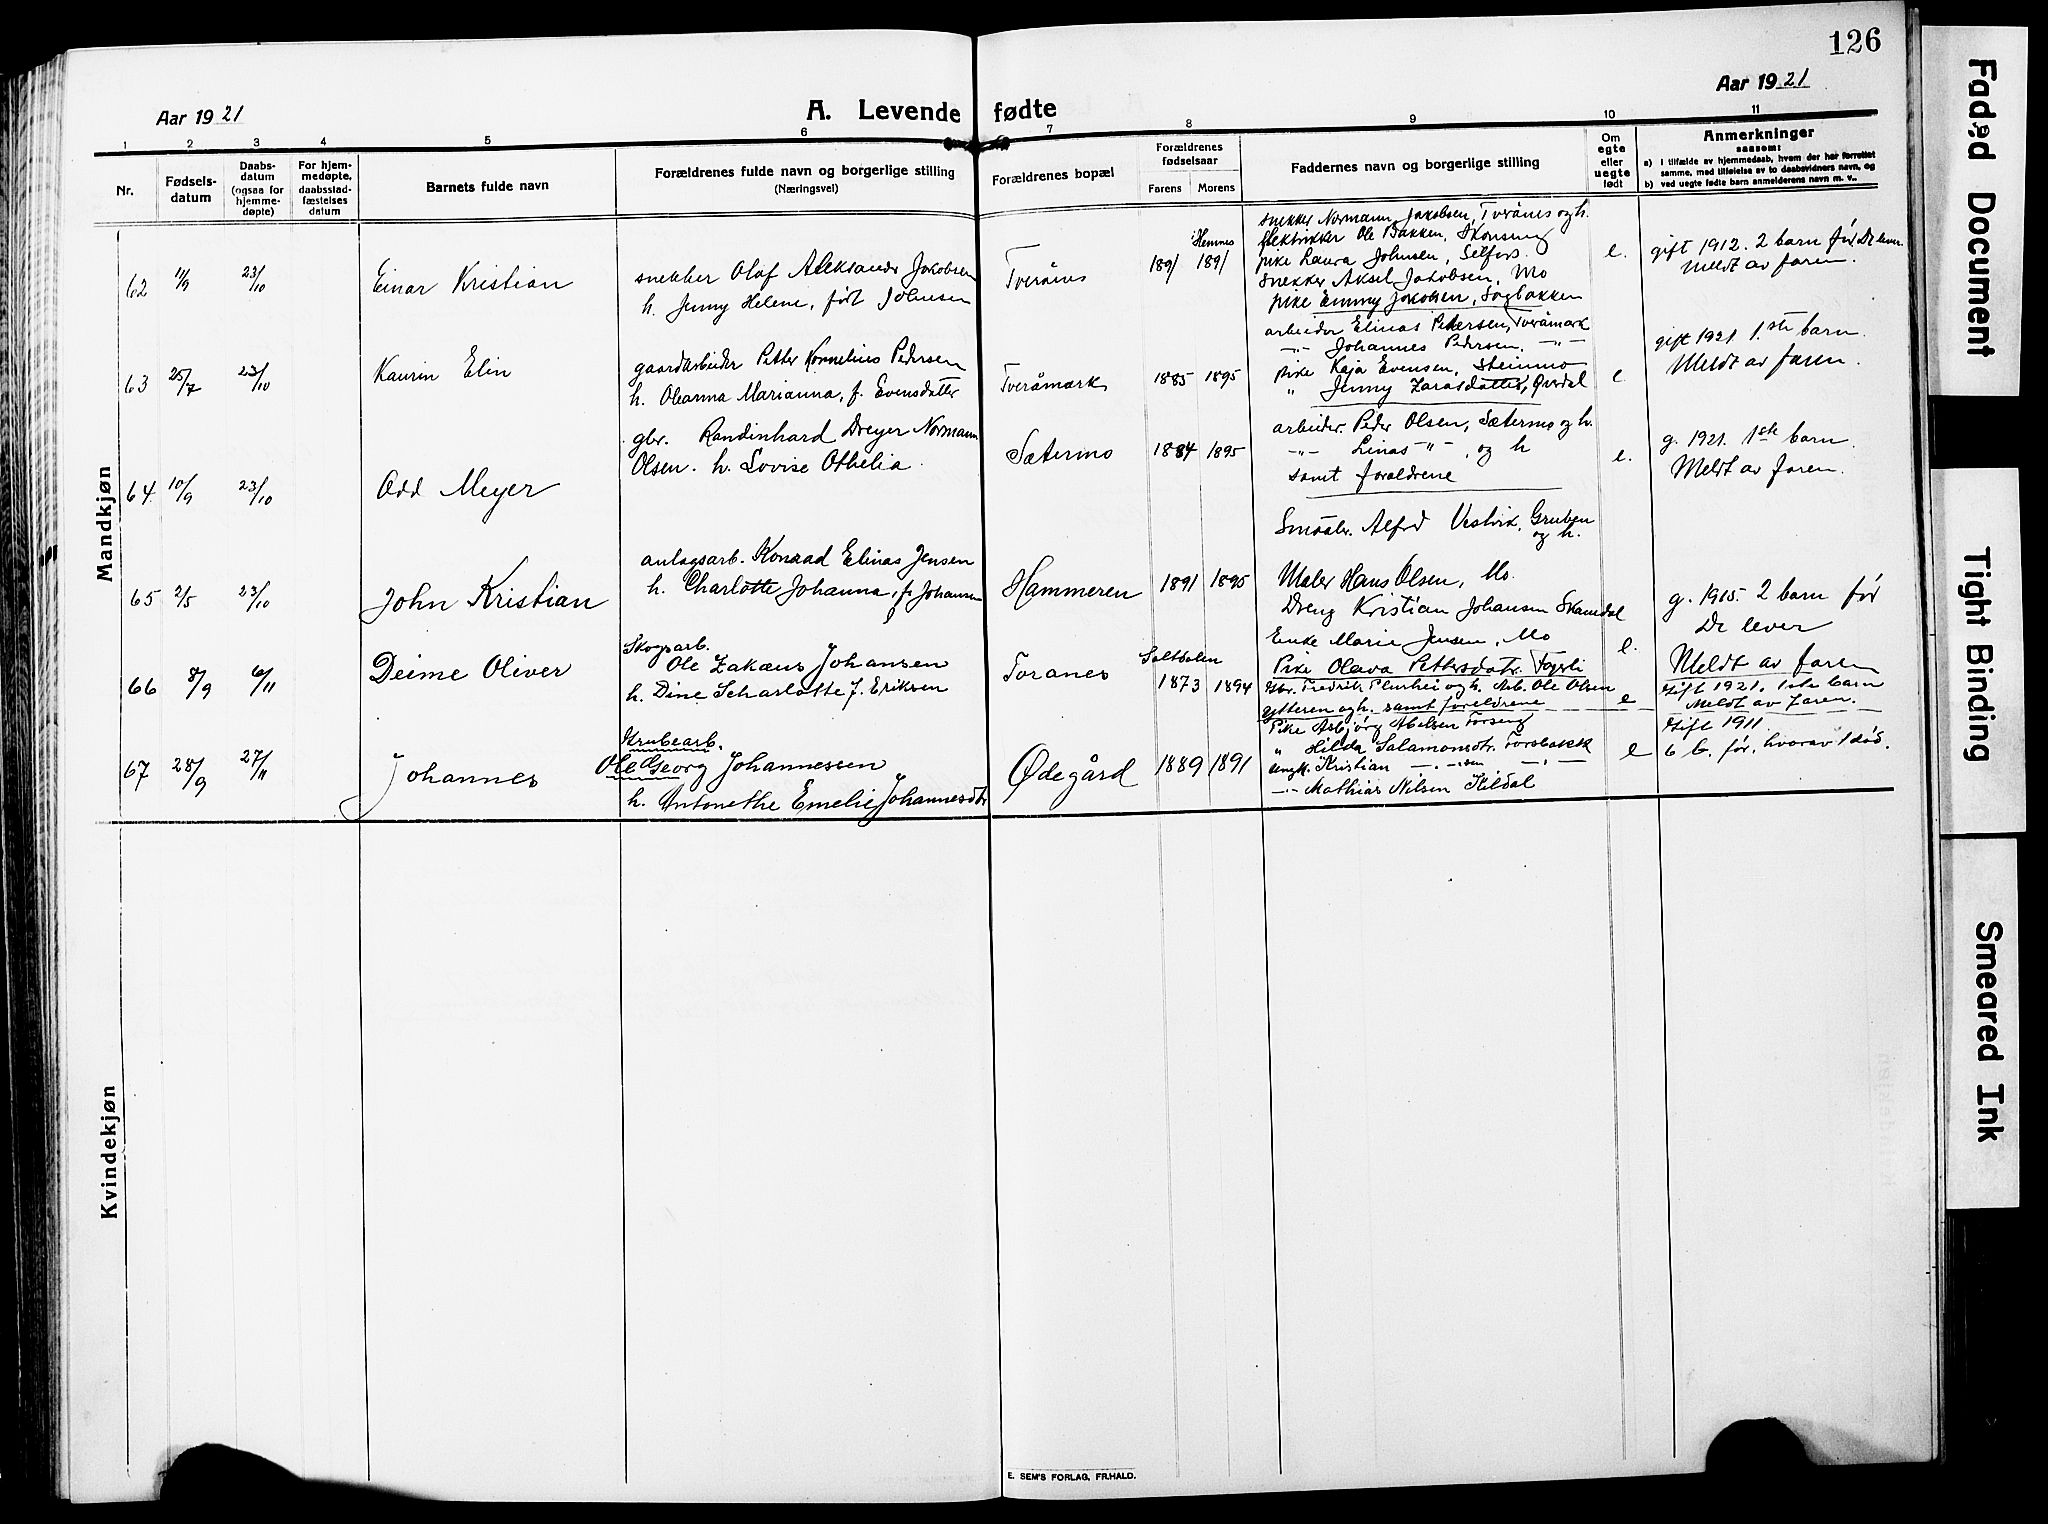 126
Aar 1921
A. Levende fødte
Aar 1921
1 2 3 4 5 6 7 8 9 10 11
Nr.
Fødsels-
datum
Daabs-
datum
(ogsaa for
hjemme-
døpte)
For hjem-
medøpte,
daabsstad-
fæstelses
datum
Barnets fulde navn
Forældrenes fulde navn og borgerlige stilling
(Næringsvei)
Forældrenes bopæl
Forældrenes
fødselsaar
Farens Morens
Faddernes navn og borgerlige stilling
Om
egte
eller
uegte
født
Anmerkninger
saasom:
a) I tilfælde av hjemmedaab, hvem der har forrettet
samme, med tilføielse av to daabsvidners navn, og
b) ved uegte fødte barn anmelderens navn m. v..
Mandkjøn
62 11/9 23/10 Einar Kristian
snekker Olaf Aleksander Jakobsen
h. Jenny Helene, født Johnsen
Tverånes
Hemnes
1891 1891
snekker Normann Jakobsen, Tverånes og h.
elektrikker Ole Bakken, Skonseng
pike Laura Johnsen, Selfors.
Snekker Aksel Jakobsen, Mo
pike Emmy Jakobsen, Sagbakken
e.
gift 1912. 2 barn før De lever
Meldt av faren.
63 25/7 23/10 Kaurin Elin
gaardarbeider Petter Kornelius Pedersen
h. Oleanna Marianna, f. Evensdatter
Tveråmark
1885 1895
arbeider Elinas Petersen, Tveråmark
-"- Johannes Pedersen, -"-
pike Kaja Evensen, Steinmo
" Jenny Zarasdatter,
e.
gift 1921. 1.ste barn.
Meldt av faren.
64 10/9 23/10 Odd Meyer
gbr. Randinhard Dreyer Normann
Olsen. h. Lovise Othelia.
Sætermo
1884 1895
arbeider. Peder Olsen, Sætermo og h.
-"- Linas -"-, og h
samt forældrene
e.
g. 1921. 1ste barn.
Meldt av faren.
65 2/5 23/10 John Kristian
anlagsarb. Konrad Elinas Jensen
h. Charlotte Johanna, f. Johansen
Hammeren
1891 1895
Smaabr. Alfred Vestvik, Gruben
og h.
Maler Hans Olsen, Mo.
Dreng Kristian Johansen
Enke Marie Jensen, Mo
Pike Olava Pettersdatr.
e.
g. 1915. 2 barn før
De lever
Meldt av faren
66 8/9 6/11 Deime Oliver
Skogsarb.
Ole Zakæus Johansen
h. Dine Scharlotte f. Eriksen
Toranes
Saltdalen
1873 1894
Gbr. Fredrik og h. Arb. Ole Olsen
Ytteren og h. samt foreldrene
e
Gift 1921. 1ste barn
Meldt av Faren.
67 28/9 27/11 Johannes
Grubearb.
Ole Georg Johannessen
h. Antonethe Emelie Johannesdtr
Ødegård
1889 1891
Pike Asbjørg Abelsen Forseng
" Hilda Salamonsdtr. Forsbakk
Ungk. Kristian -"- sen -"-
-"- Mathias Nilsen Kildal
e
Gift 1911
6 b. før, hvorav 1 død.
Kvindekjøn
E. SEM'S FORLAG, FR.HALD.
Faded Document
Tight Binding
Smeared Ink